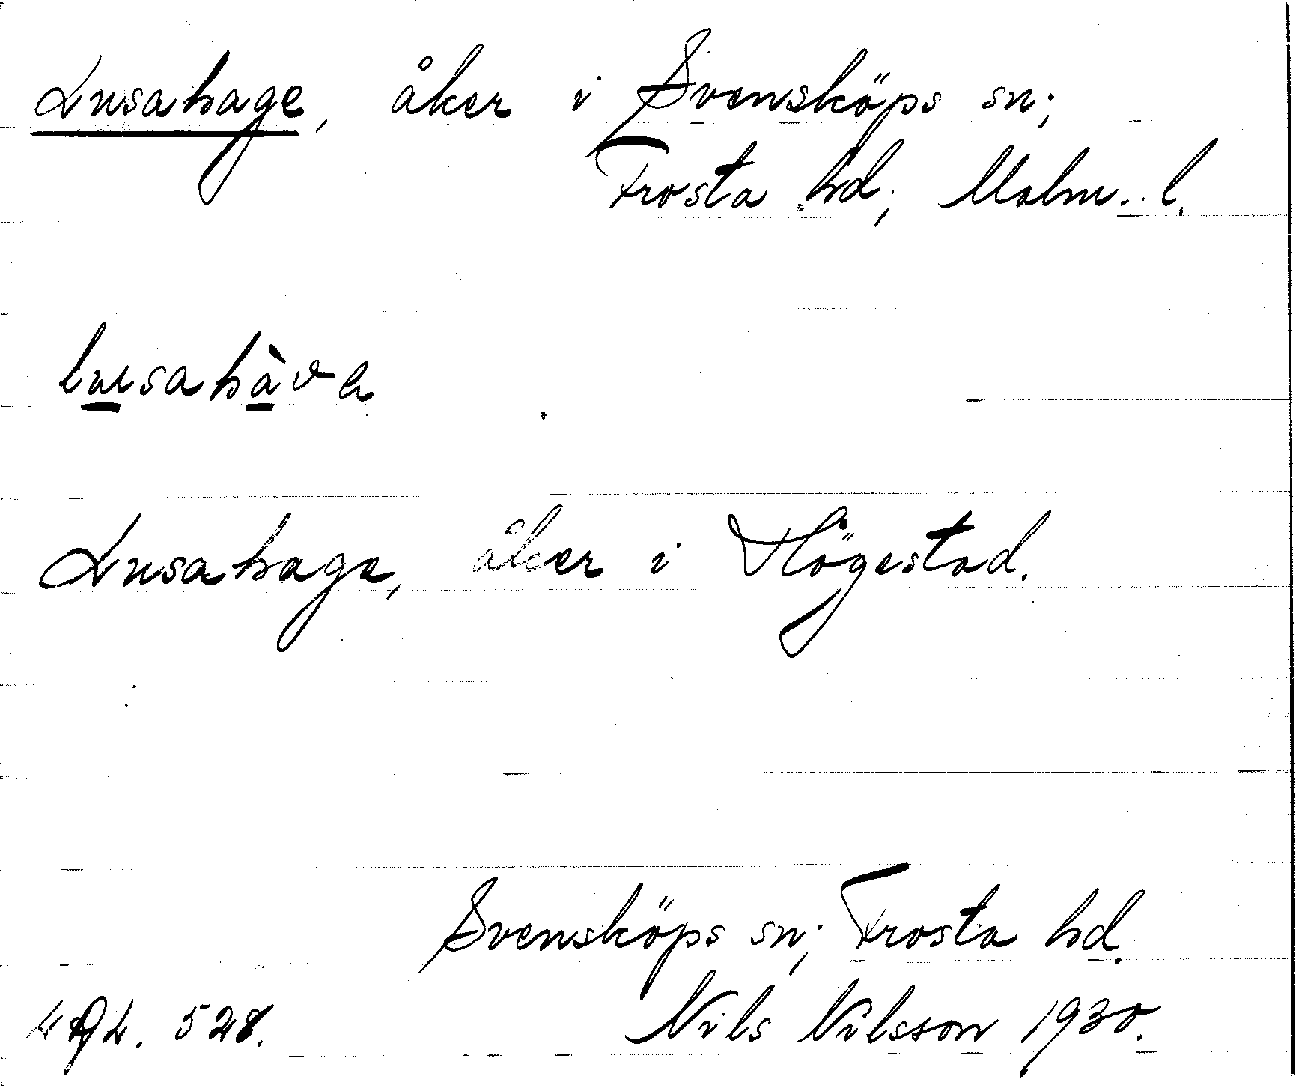 Lusahage, åker i Svensköps sn;
Frosta hd; Malm. l.
lusahàva
Lusahage, åker i Högestad.
Svensköps sn; Frosta hd.
Nils Nilsson 1930.
528.